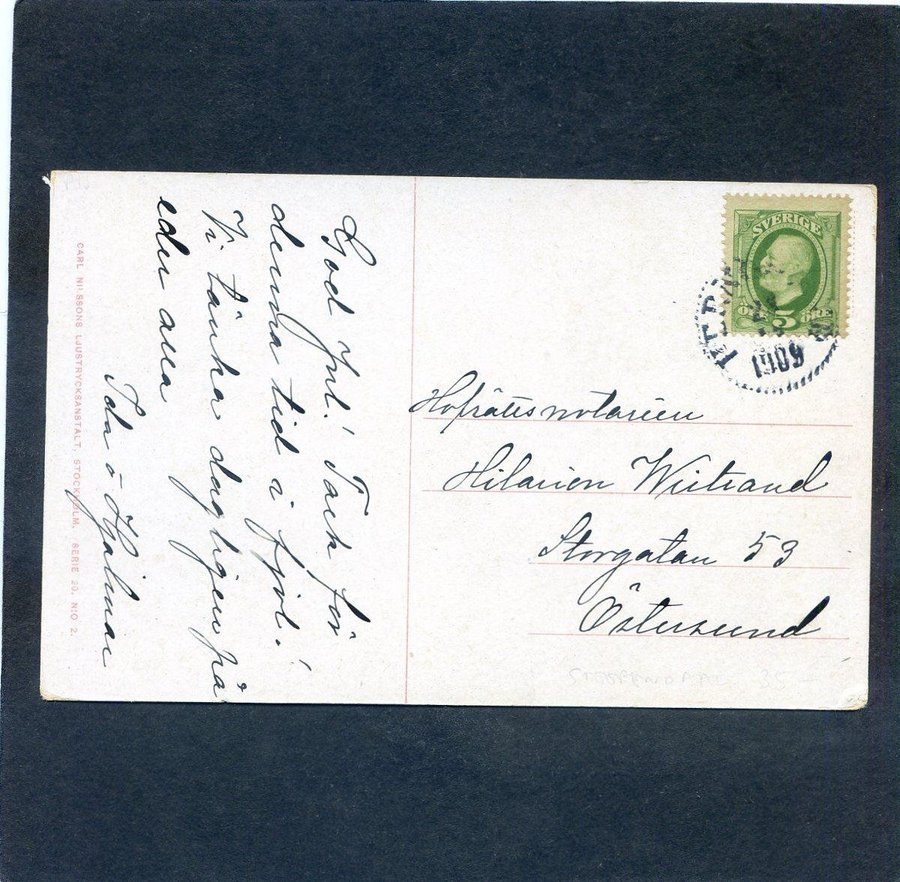 God Jul! Tack för
denna tid i fjol!
Vi tänka dagligen på
eder alla
Ida o Hjalmar
CARL NILSSONS LJUSTRYCKSANSTALT, STOCKHOLM. SERIE 20. N:O 2.
SVERIGE
5
ÖRE
1909
Hofrättsnotarien
Hilarion Wistrand
Storgatan 53
Östersund
35